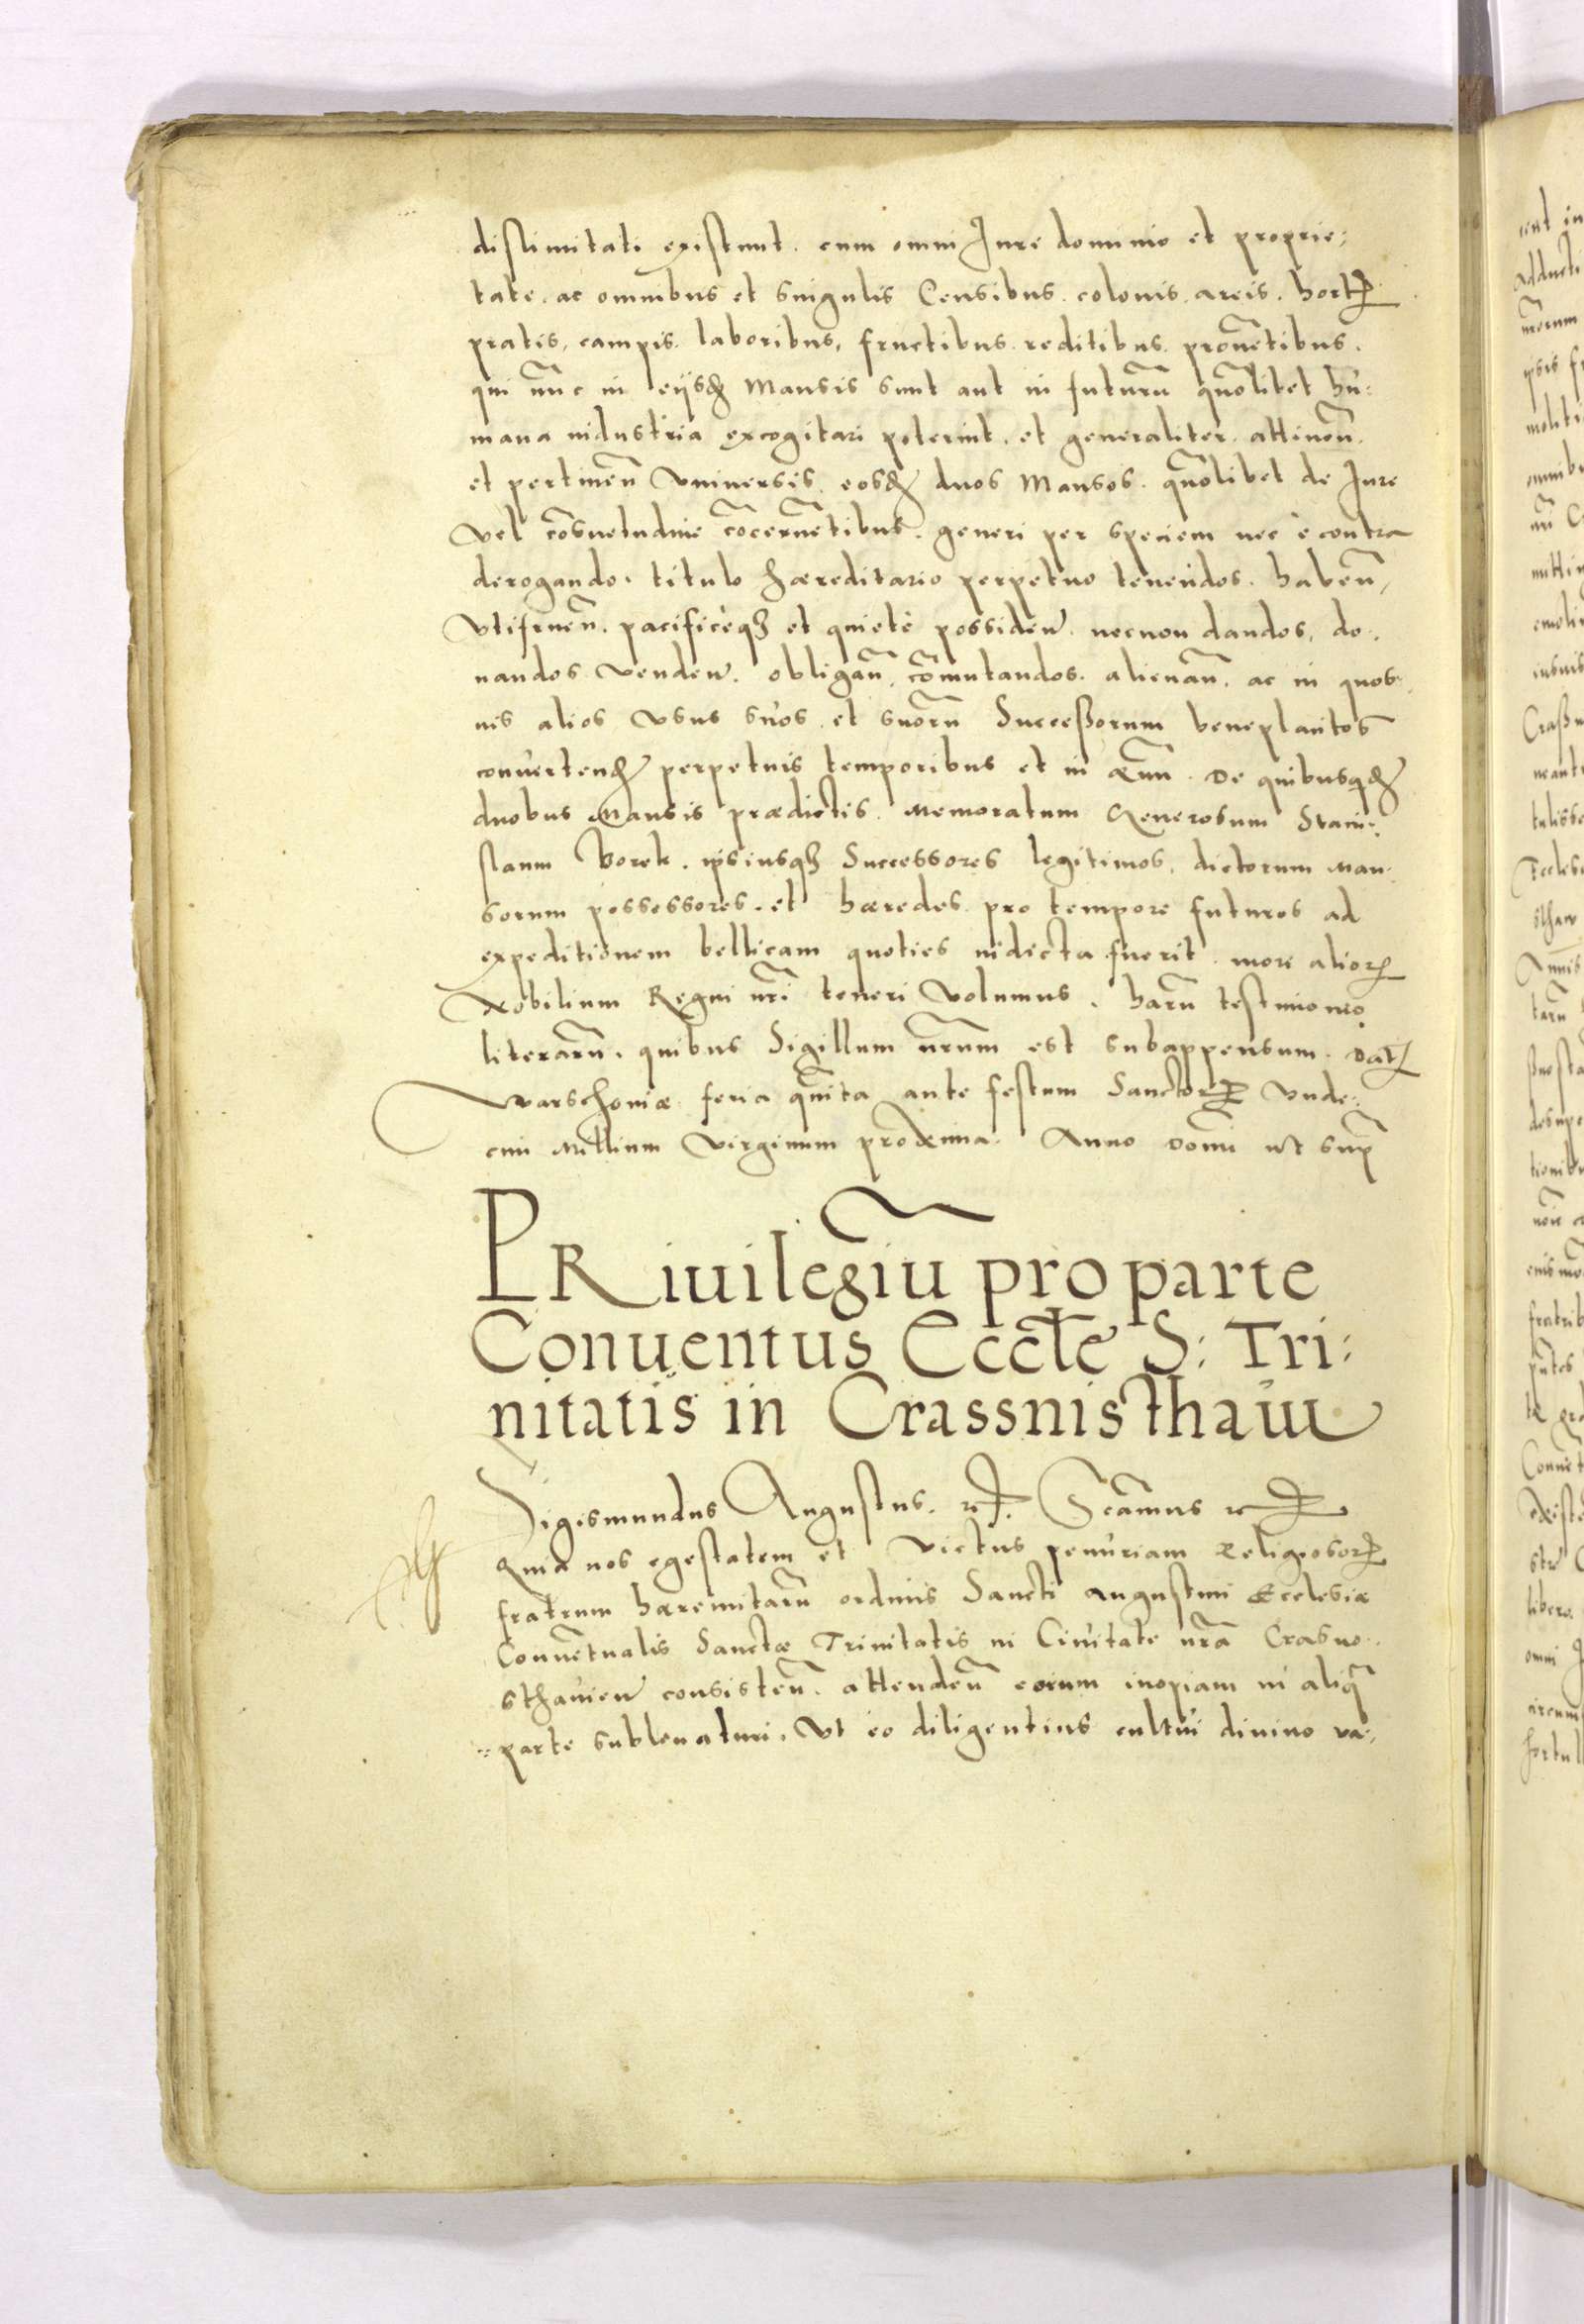 dislimitati existunt. cum omni Jure dominio et proprie:
tate. ac omnibus et singulis Censibus. colonis. areis. hort
pratis, campis. laboribus, fructibus. reditibus. prouētibus.
qui nūnc in eijsd Mansis sunt aut in futurū quōlibet hu:
mana industria excogitari poterint. et generaliter. attinen̄.
et pertinen̄ Vniuersis. eosd duos Mansos. quōlibet de Jure
Vel cōsuetudine cōcernētibus. generi per speciem nec è contra
derogando. titulo hæreditario perpetuo tenendos. haben̄,
Vtifruen̄. pacificèq3 et quietè possiden. necnon dandos, do.
nandos venden. obligan̄. cōmutandos. alienan̄. ac in quos.
uis alios Vsus suos. et suorū Succeßorum beneplacitos
conuertend perpetuis temporibus et in æuū. De quibusqd
duobus Mansis prædictis. Memoratum Generosum Stani:
slaum Borek. ipsiusq3 Successores legitimos, dictorum Man.
sorum possessores. et hæredes pro tempore futuros ad
expeditionem bellicam quoties indicta fuerit. more alior
Nobilium Regni nr̄i teneri Volumus. harū testimonio
literarū. quibus Sigillum nr̄um est subappensum. Dat
Warschouiæ feria quīta ante festum Sanctor Vnde:
cim Millium Virginum proxima. Anno Domī ut sup
PRiuilegiū pro parte
Conuentus Eccłe S: Tri:
nitatis in Crassnisthaw
Sigismundus Augustus. rc. Sc̄amus rc
Quia nos egestatem et Victus penuriam Religiosor
fratrum hæremitarū ordinis Sancti Augustini Ecclesiæ
Conuētualis Sanctæ Trinitatis in Ciuitate nr̄a Crasno.
sthauien consisten̄. attenden̄ eorum inopiam in aliq̄
parte subleuaturi. Vt eo diligentius cultui diuino va: